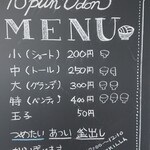 15pun Udon
MENU
小(ショート) 200円
中(トール) 250円
大(グランデ) 300円
特(ベンティ) 400円
玉子 50円
つめたい あつい 釜出し